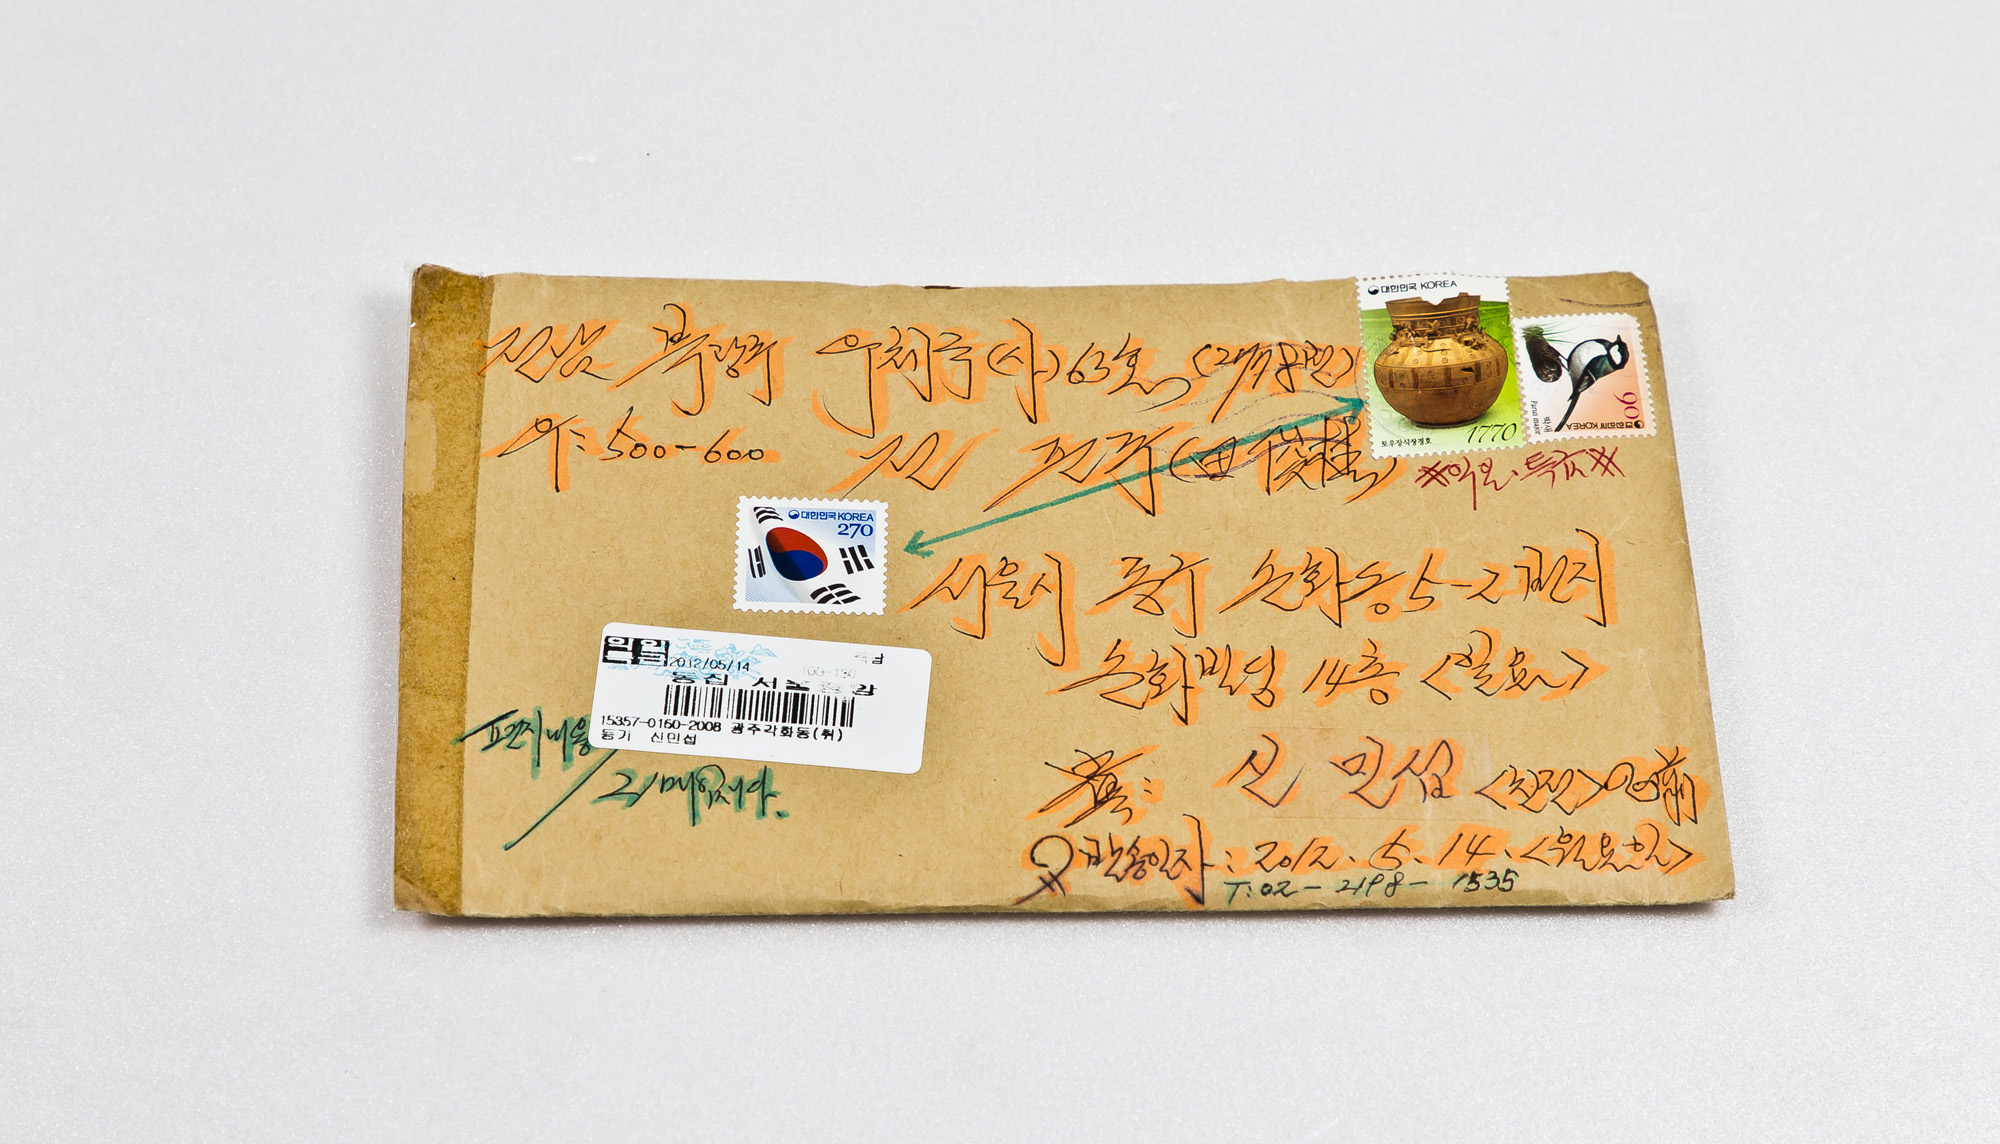 대한민국 KOREA
토우장식장경호
1770
대한민국 KOREA
90
박새
Parus major
전남 북광주 우체국(사)63호
우: 500-600
전
*익일·특급*
대한민국 KOREA
270
서울시 중구 순화동 5-2번지
순화빌딩 14층
익일
2012/05/14
100-130
15357-0160-2008 광주각화동(취)
등기 신민섭
편지내용
21매입니다.
신민섭
발송일자: 2012. 5. 14. <월요일>
T: 02-2198-1535